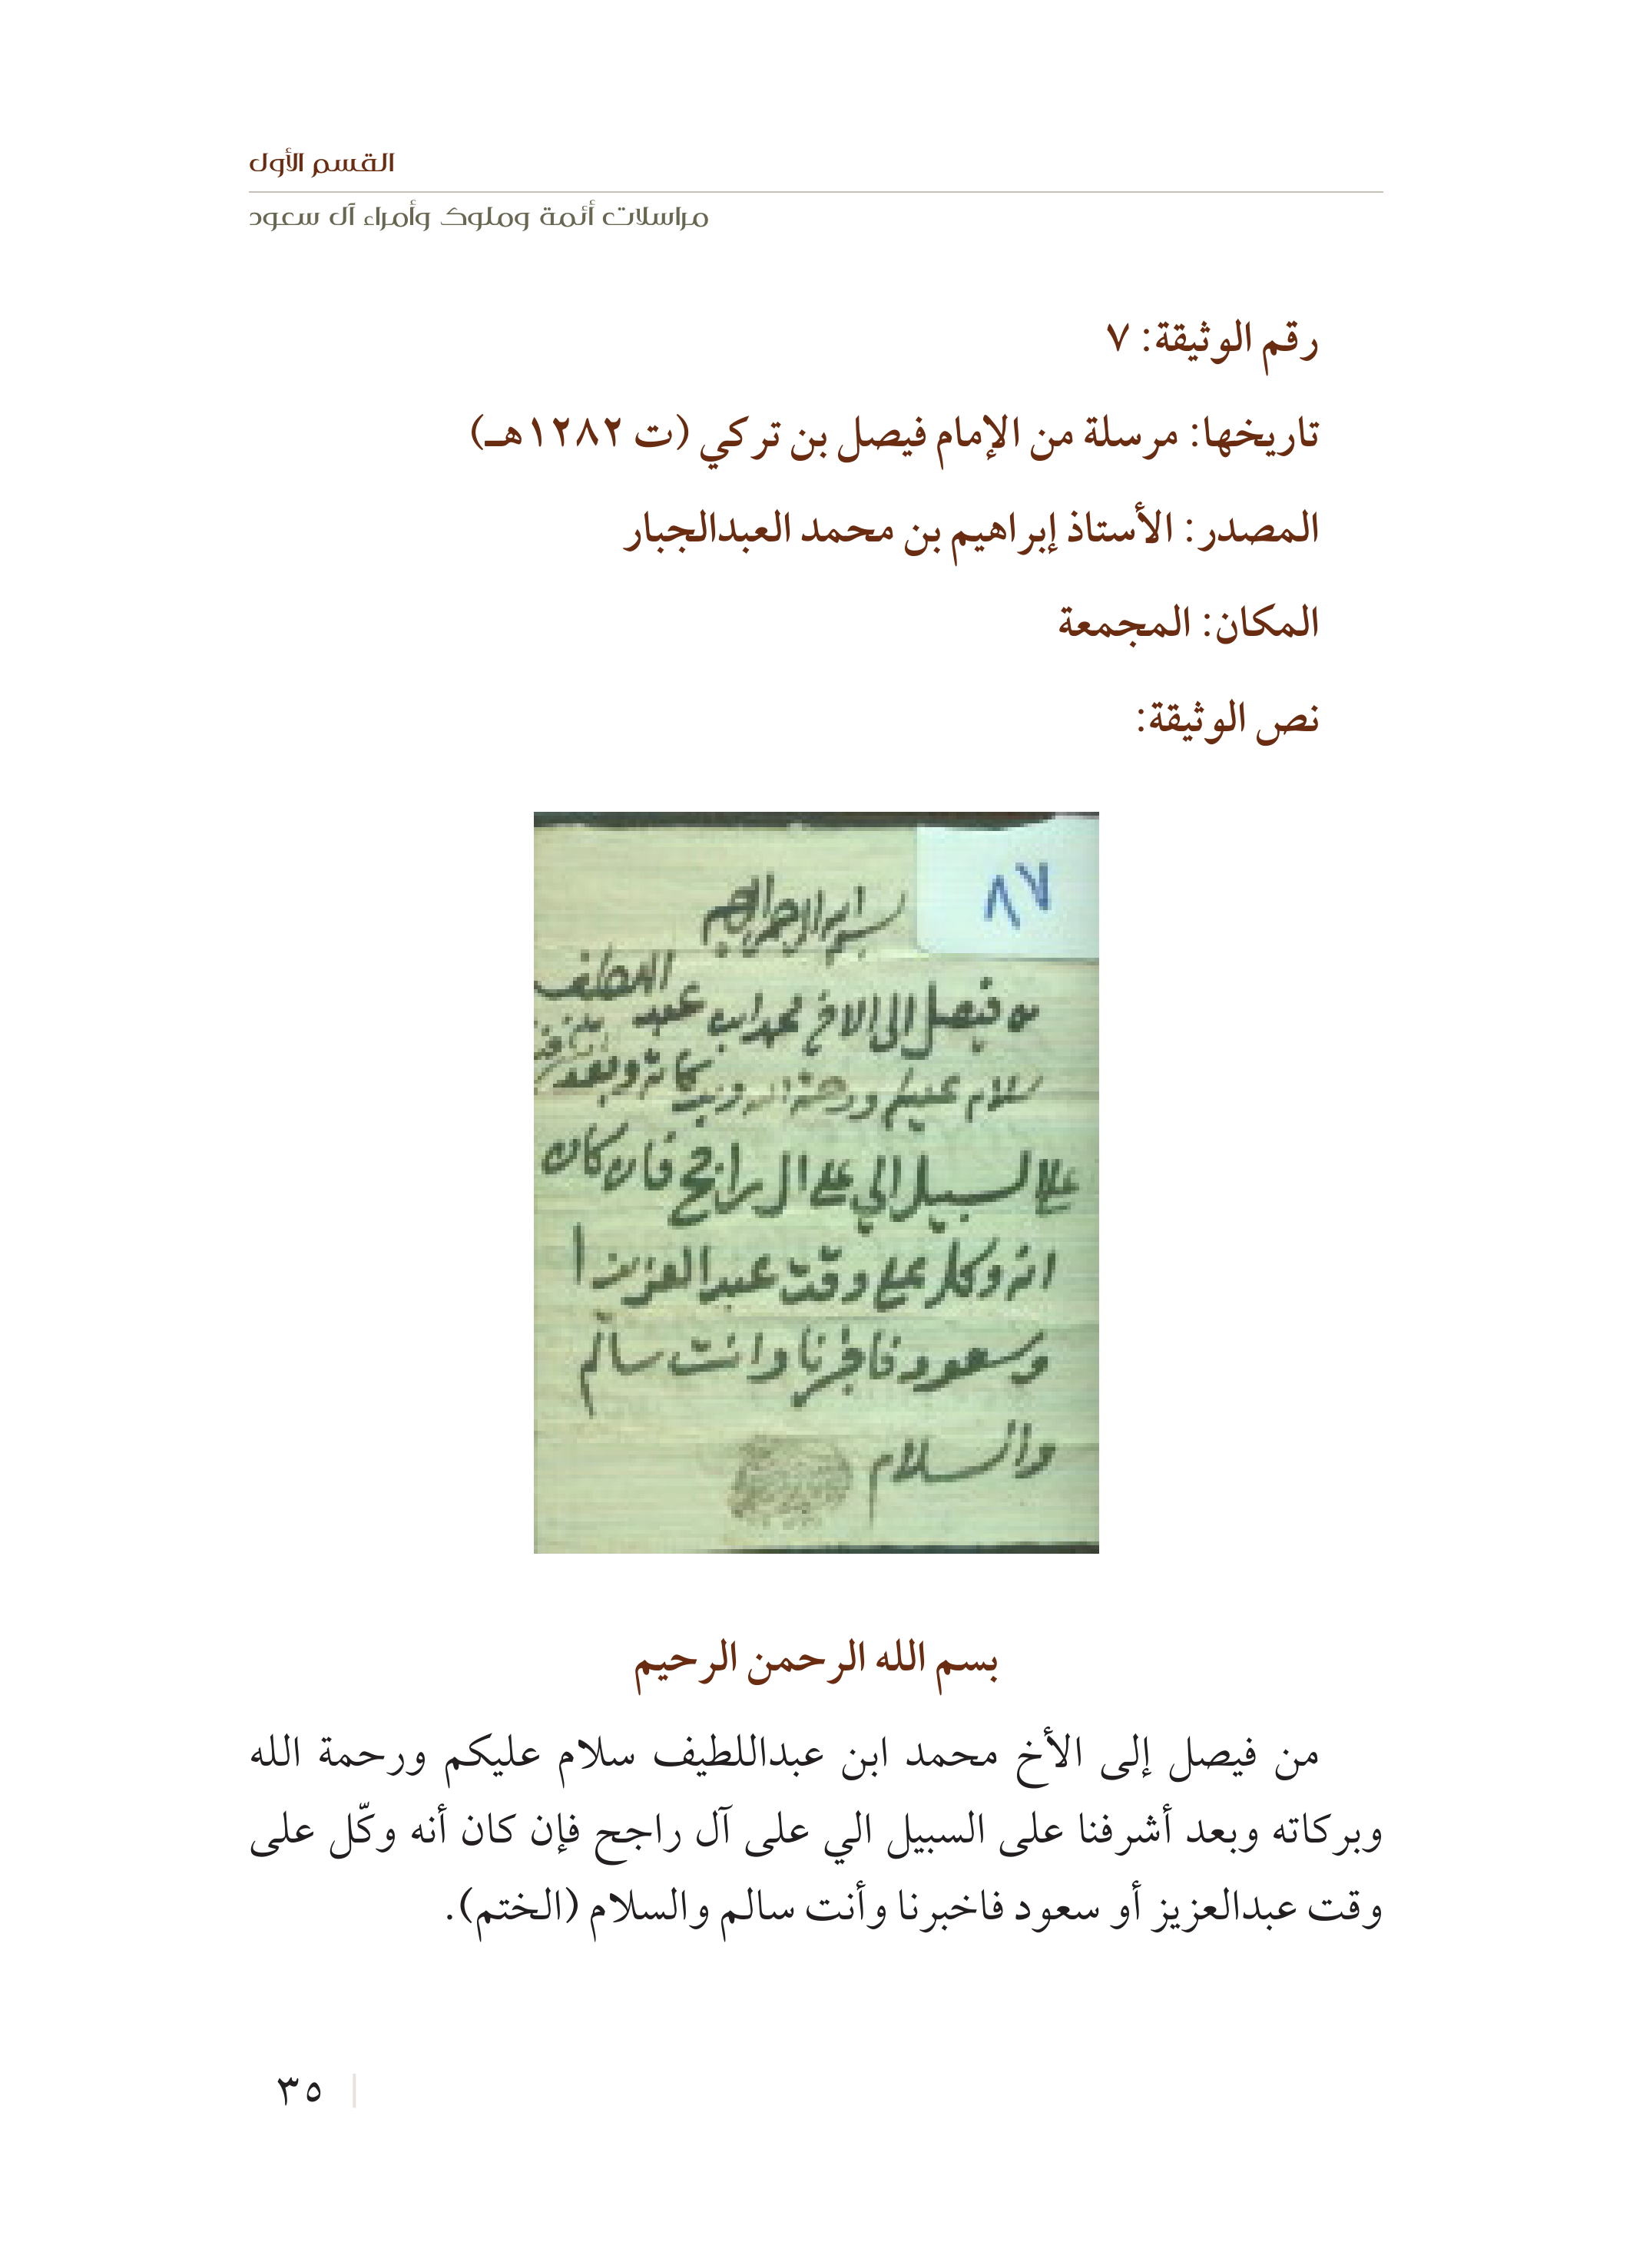 القسم الأول
مراسلات أئمة وملوك وأمراء آل سعود
رقم الوثيقة: ٧
تاريخها: مرسلة من الإمام فيصل بن تركي (ت ١٢٨٢هـ)
المصدر: الأستاذ إبراهيم بن محمد العبدالجبار
المكان: المجمعة
نص الوثيقة:
٨٧
بسم الله الرحمن الرحيم
من فيصل الى الاخ محمد ابن عبد اللطيف
سلام عليكم ورحمة الله وبركاته وبعد
على السبيل الي على ال راجح فان كان
انه وكل على وقت عبد العزيز ا
و سعود فاخبرنا وانت سالم
والسلام
بسم الله الرحمن الرحيم
من فيصل إلى الأخ محمد ابن عبداللطيف سلام عليكم ورحمة الله
وبركاته وبعد أشرفنا على السبيل الي على آل راجح فإن كان أنه وكّل على
وقت عبدالعزيز أو سعود فاخبرنا وأنت سالم والسلام (الختم).
٣٥